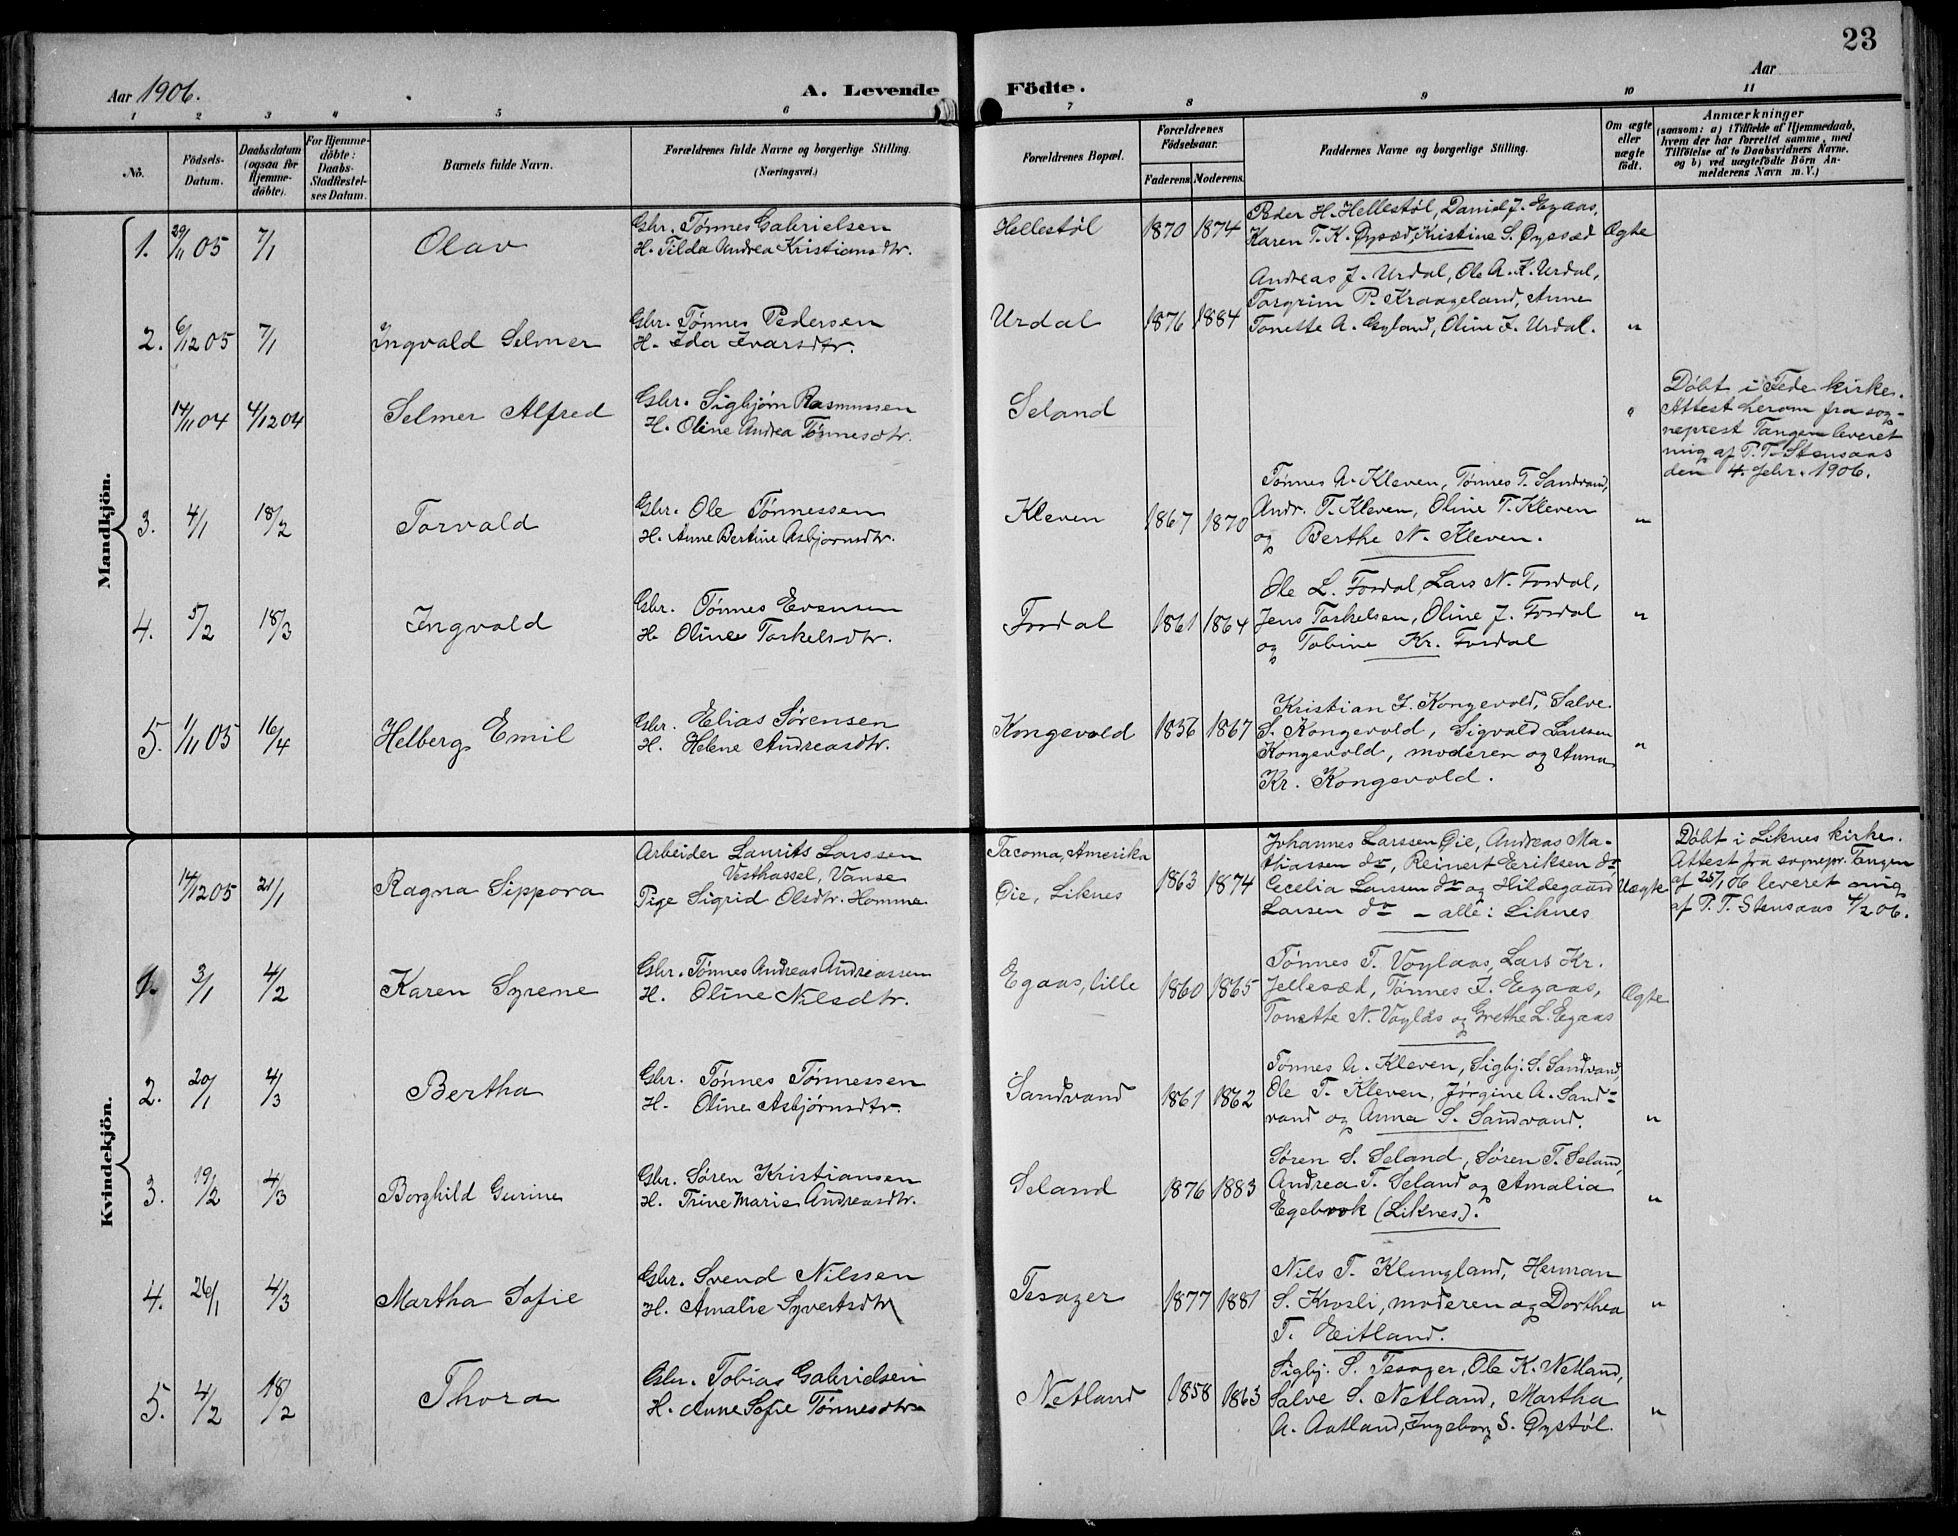 23
Aar 1906. A. Levende Födte. Aar
1 2 3 4 5 6 7 8 9 10 11
No. Födsels-Datum. Daabsdatum (ogsaa for Hjemme-döbte). For Hjemme-döbte: Daabs-Stadfæstel-ses Datum. Barnets fulde Navn. Forældrenes fulde Navne og borgerlige Stilling. (Næringsvei.) Forældrenes Bopæl. Forældrenes Födselsaar. Faderens. Moderens. Faddernes Navne og borgerlige Stilling. Om ægte eller uægte födt. Anmærkninger (saasom: a) i Tilfælde af Hjemmedaab, hvem der har forrettet samme, med Tilföielse af to Daabsvidners Navne. og b) ved uægtefödte Börn An-melderens Navn m. V.)
Mandkjön.
1. 29/11 05 7/1 Olav Gbr. Tønnes Gabrielsen
H. Tilda Andrea Kristiansdtr.
Hellestøl 1870 1874 Peder H. Hellestøl, Daniel J. Egaas,
Karen T. K. Øysæd, Kristine S. Øysæd Ægte
2. 6/12 05 7/1 Ingvald Selmer Gbr. Tønnes Pedersen
H. Ida Ivarsdtr.
Urdal 1876 1884 Andreas J. Urdal, Ole A. K. Urdal,
Torgrim P. Kraageland, Anne
Tonette A. Gyland, Oline I. Urdal. "
14/11 04 4/12 04 Selmer Alfred Gbr. Sigbjørn Rasmussen
H. Oline Andrea Tønnesdtr.
Seland "
Døbt i Fede kirke.
Attest herom fra sog-
neprest Tangen leveret
mig af P. T. Stensaas
den 4. febr. 1906.
3. 4/1 18/2 Torvald Gbr. Ole Tønnessen
H. Anne Bertine Asbjørnsdtr.
Kleven 1867 1870 Tønnes A. Kleven, Tønnes T. Sandvand,
Andr. T. Kleven, Oline T. Kleven
og Berthe N. Kleven. "
4. 5/2 18/3 Ingvald Gbr. Tønnes Evensen
H. Oline Torkelsdtr.
Fosdal 1861 1864 Ole L. Fosdal, Lars N. Fosdal,
Jens Torkelsen, Oline J. Fosdal
og Tobine Kr. Fosdal "
5. 1/11 05 16/4 Helberg Emil Gbr. Elias Sørensen
H. Helene Andreasdtr.
Kongevold 1856 1867 Kristian I. Kongevold, Salve
S. Kongevold, Sigvald Larssen
Kongevold, moderen og Anna
Kr. Kongevold. "
Kvindekjön.
14/12 05 21/1 Ragna Sippora Arbeider Laurits Larssen
Vesthassel, Vanse
Pige Sigrid Olsdtr. Homme
Tacoma, Amerika
Øie, Liknes 1863 1874 Johannes Larssen Øie, Andreas Ma-
thiassen do, Reinert Eeriksen do,
Cecelia Larssen do og Hildegaard
Larsen do - alle i Liknes Uægte
Døbt i Liknes kirke.
Attest fra sognepr. Tangen
af 25/1 06 leveret mig
af P. T. Stensaas 4/2 06.
1. 3/1 4/2 Karen Syrene Gbr. Tønnes Andreas Andreassen
H. Oline Nilsdtr.
Egaas, lille 1860 1865 Tønnes T. Voylaas, Lars Kr.
Jellesæd, Tønnes I. Egaas,
Tonette N. Voylås og Grethe L. Egaas Ægte
2. 20/1 4/3 Bertha Gbr. Tønnes Tønnessen
H. Oline Asbjørnsdtr.
Sandvand 1861 1862 Tønnes A. Kleven, Sigbj. S. Sandvand,
Ole T. Kleven, Jørgine A. Sand-
vand og Anna S. Sandvand. "
3. 19/2 4/3 Borghild Gurine Gbr. Søren Kristiansen
H. Trine Marie Andreasdtr.
Seland 1876 1883 Søren S. Seland, Søren T. Seland,
Andrea T. Seland og Amalia
Egebrok (Liknes). "
4. 26/1 4/3 Martha Sofie Gbr. Svend Nilssen
H. Amalie Syvertsdtr
Tesager 1877 1881 Nils T. Klungland, Herman
S. Krosli, moderen og Dorthea
T. Eitland. "
5. 4/2 18/2 Thora Gbr. Tobias Gabrielsen
H. Anne Sofie Tønnesdtr
Netland 1858 1863 Sigbj. S. Tesager, Ole K. Netland,
Salve S. Netland, Martha
A. Aatland, Ingeborg S. Øystøl. "